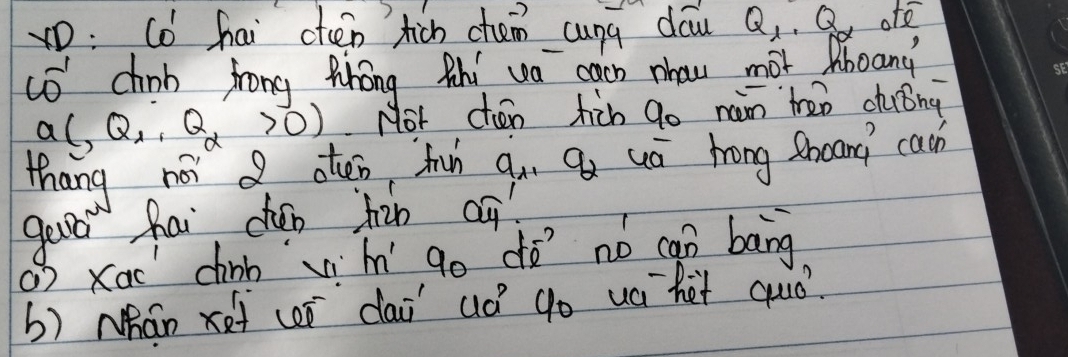 VD: Có hai điện tích điểm cùng dấu Q₁, Q₂ để
cố định trong không khí và cách nhau một khoảng
a (Q₁, Q₂ >0). Một điện tích q₀ nằm trên đường
thẳng nối 2 điện tích q₁, q₂ và trong khoảng cách
giữa hai điện tích ấy.
a) Xác định vị trí q₀ để nó cân bằng
b) Nhận xét về dấu của q₀ và kết quả.